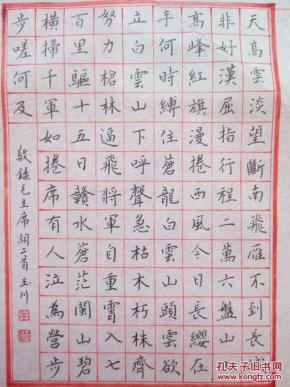 天高雲淡望斷南飛雁不到長城
非好漢屈指行程二萬六盤山
高峰紅旗漫捲西風今日長纓在
手何時縛住蒼龍白雲山頭雲欲
立白雲山下呼聲急枯木朽株齊
努力槍林逼飛將軍自重霄入七
百里驅十五日贛水蒼茫閩山碧
橫掃千軍如捲席有人泣為營步
步嗟何及
敬錄毛主席詞二首玉川